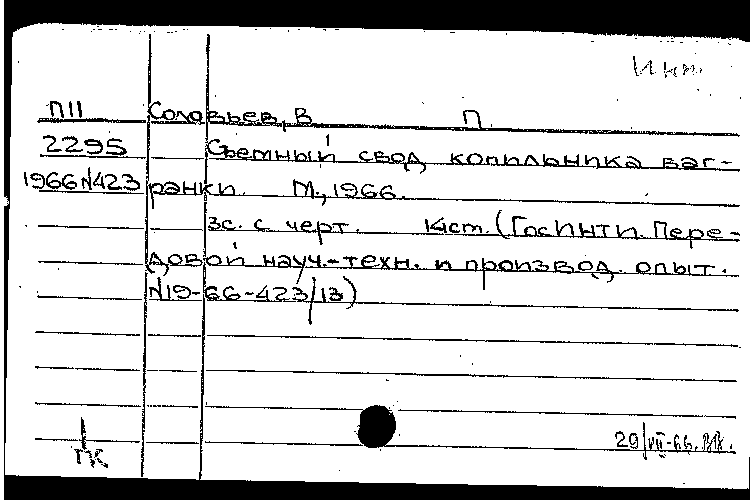 Инт.
П11 Соловьев, В П.
2295 Съемный свод копильника ваг-
1966№423 ранки. М., 1966.
3с. с черт. (ГосИНТИ. Пере-
довой науч.-техн. и производ. опыт.
№19-66-423/13)
ПК 29/VII-66.